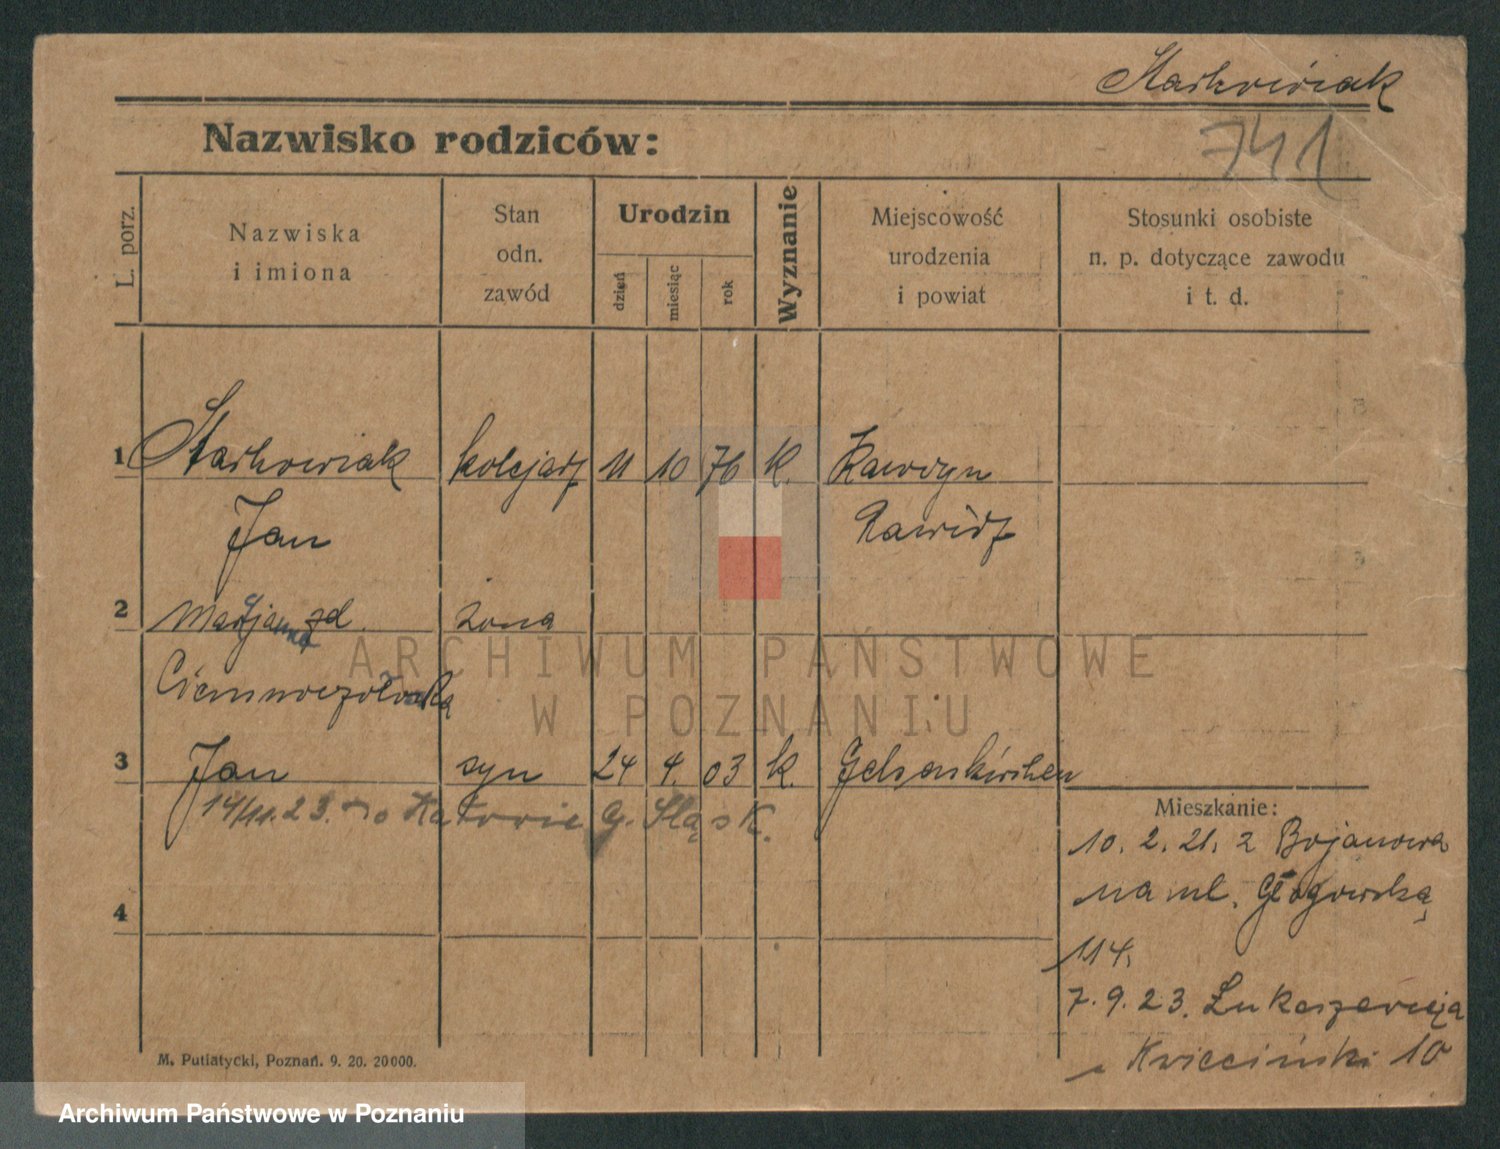 Starkowiak
741
Nazwisko rodziców:
L. porz.
Nazwiska
i imiona
Stan
odn.
zawód
Urodzin
dzień
miesiąc
rok
Wyznanie
Miejscowość
urodzenia
i powiat
Stosunki osobiste
n. p. dotyczące zawodu
i t. d.
1 Starkowiak kolejarz 11 10 76 k.
Jan Rawicz
2 zd. żona
3 Jan syn 24 4. 03 k. Gelsenkirchen
14/11.23. do Katowic G. Śląsk.
4
Mieszkanie:
10. 2. 21. z Bojanowa
na ul. Głogowską
114.
7. 9. 23. Łukaszewicza
Kwieciński 10
M. Putiatycki, Poznań. 9. 20. 20000.
ARCHIWUM PAŃSTWOWE
W POZNANIU
Archiwum Państwowe w Poznaniu